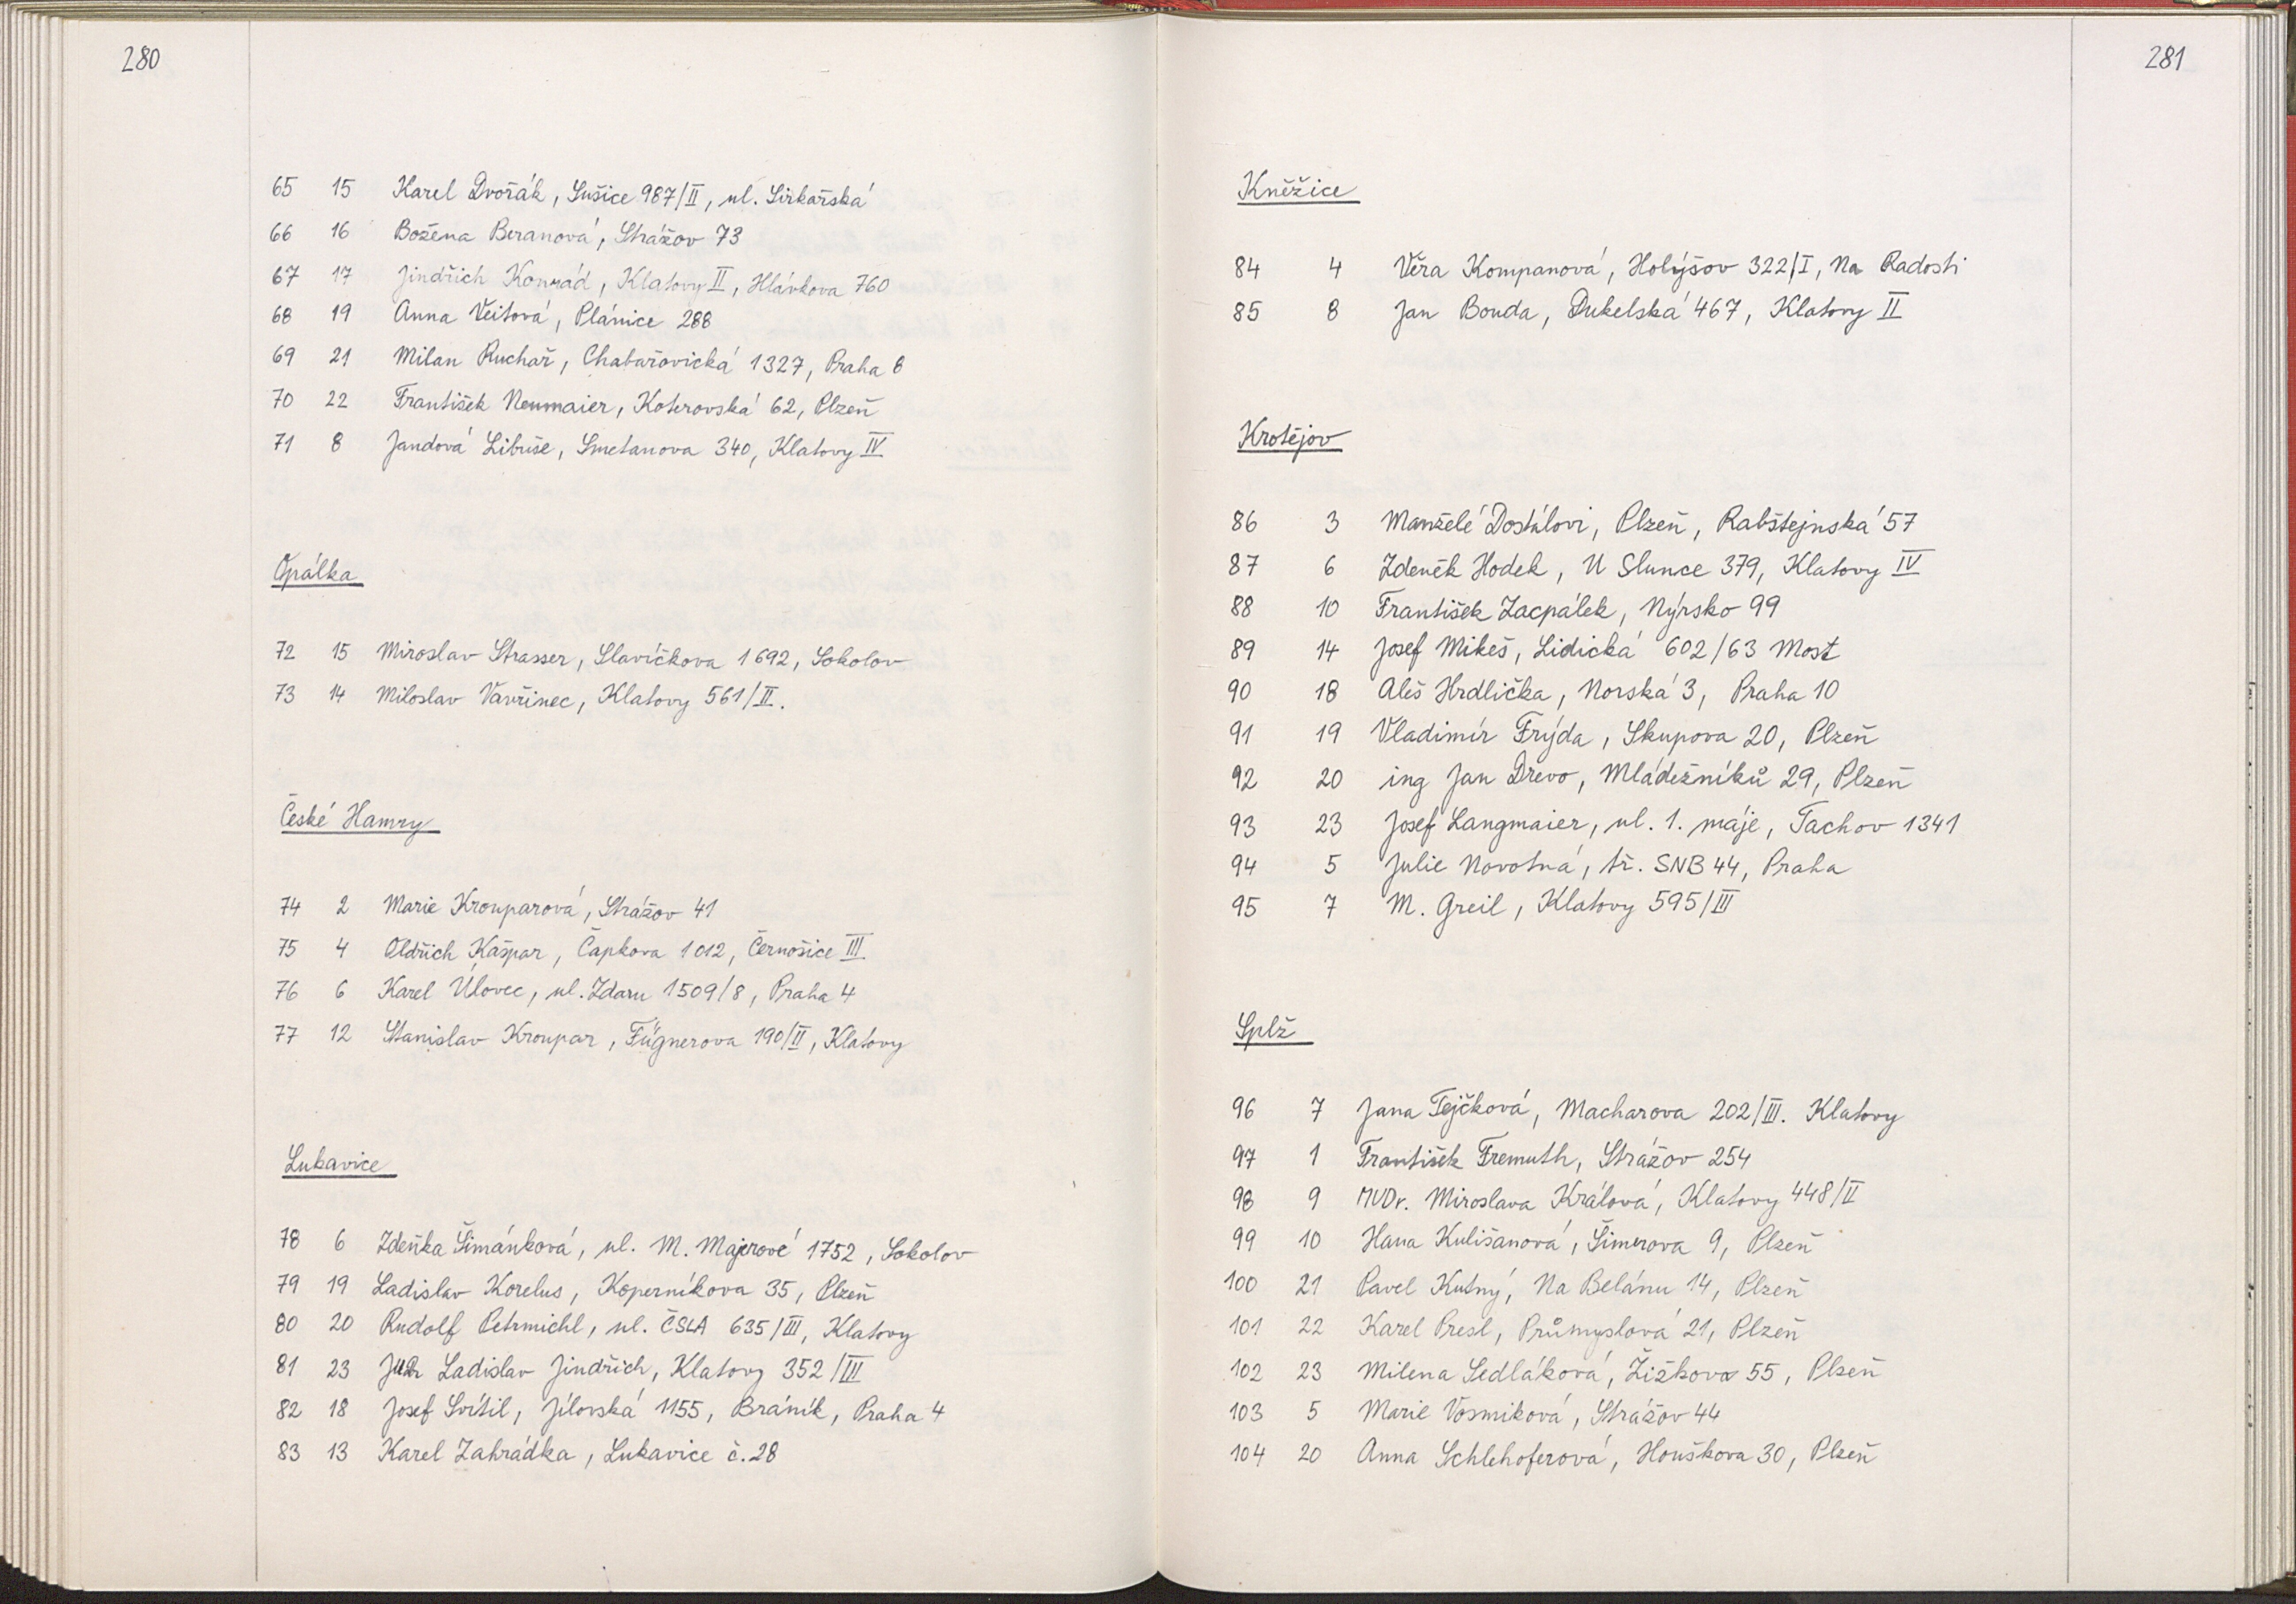 280
65 15 Karel Dvořák, Sušice 987/II, ul. Sirkařská
66 16 Božena Beranová, Strážov 73
67 17 Jindřich Konrád, Klatovy II, Hlávkova 760
68 19 Anna Veitová, Plánice 288
69 21 Milan Ruchař, Chabařovická 1327, Praha 8
70 22 František Neumaier, Koterovská 62, Plzeň
71 8 Jandová Libuše, Smetanova 340, Klatovy IV
Opálka
72 15 Miroslav Strasser, Slavíčkova 1692, Sokolov
73 14 Miloslav Vavřinec, Klatovy 561/II.
České Hamry
74 2 Marie Krouparová, Strážov 41
75 4 Oldřich Kašpar, Čapkova 1012, Černošice III.
76 6 Karel Úlovec, ul. Zdaru 1509/8, Praha 4
77 12 Stanislav Kroupar, Fügnerova 190/II, Klatovy
Lukavice
78 6 Zdeňka Šimánková, ul. M. Majerové 1752, Sokolov
79 19 Ladislav Korelus, Koperníkova 35, Plzeň
80 20 Rudolf Petrmichl, ul. ČSLA 635/III, Klatovy
81 23 JUDr Ladislav Jindřich, Klatovy 352/III
82 18 Josef Svítil, Jílovská 1155, Bráník, Praha 4
83 13 Karel Zahrádka, Lukavice č. 28
281
Kněžice
84 4 Věra Kompanová, Holýšov 322/I, Na Radosti
85 8 Jan Bouda, Dukelská 467, Klatovy II
Krotějov
86 3 Manželé Dostálovi, Plzeň, Rabštejnská 57
87 6 Zdeněk Hodek, U Slunce 379, Klatovy IV
88 10 František Zacpálek, Nýrsko 99
89 14 Josef Mikeš, Lidická 602/63 Most
90 18 Aleš Hrdlička, Norská 3, Praha 10
91 19 Vladimír Frýda, Skupova 20, Plzeň
92 20 ing Jan Dřevo, Mládežníků 29, Plzeň
93 23 Josef Langmaier, ul. 1. máje, Tachov 1341
94 5 Julie Novotná, tř. SNB 44, Praha
95 7 M. Greil, Klatovy 595/III
Splž
96 7 Jana Tejčková, Macharova 202/III. Klatovy
97 1 František Fremuth, Strážov 254
98 9 MVDr. Miroslava Králová, Klatovy 448/II
99 10 Hana Kulišanová, Šimerova 9, Plzeň
100 21 Pavel Kutný, Na Belánu 14, Plzeň
101 22 Karel Presl, Průmyslová 21, Plzeň
102 23 Milena Sedláková, Žižkova 55, Plzeň
103 5 Marie Vosmiková, Strážov 44
104 20 Anna Schlehoferová, Houškova 30, Plzeň